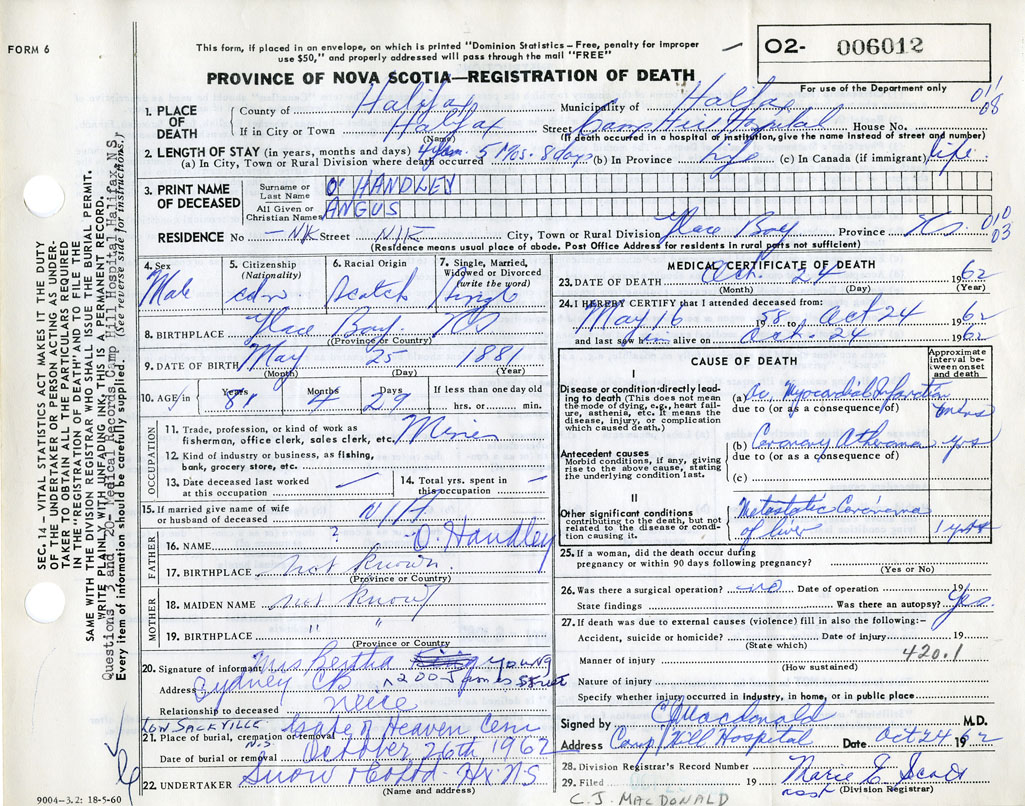 FORM 6
This form, if placed in an envelope, on which is printed "Dominion Statistics – Free, penalty for improper
use $50," and properly addressed will pass through the mail "FREE"
O2- 006012
For use of the Department only
PROVINCE OF NOVA SCOTIA—REGISTRATION OF DEATH
1. PLACE OF DEATH
County of Halifax Municipality of Halifax 01/08
If in City or Town Halifax Street Camp Hill Hospital House No.
(Name) (If death occurred in a hospital or institution, give the name instead of street and number)
2. LENGTH OF STAY (in years, months and days)
(a) In City, Town or Rural Division where death occurred 4 yrs. 5 Mos. 8 days (b) In Province Life (c) In Canada (if immigrant) life
3. PRINT NAME OF DECEASED
Surname or Last Name O'HANDLEY
All Given or Christian Names ANGUS
RESIDENCE No — NK Street N/K City, Town or Rural Division Glace Bay Province NS 010/03
(Residence means usual place of abode. Post Office Address for residents in rural parts not sufficient)
4. Sex Male
5. Citizenship (Nationality) cdn
6. Racial Origin Scotch
7. Single, Married, Widowed or Divorced (write the word) Single
8. BIRTHPLACE Glace Bay. NS
(Province or Country)
9. DATE OF BIRTH May 25 1881
(Month) (Day) (Year)
10. AGE in Years 81 Months 4 Days 29 If less than one day old hrs. or min.
OCCUPATION
11. Trade, profession, or kind of work as
fisherman, office clerk, sales clerk, etc. Miner
12. Kind of industry or business, as fishing,
bank, grocery store, etc
13. Date deceased last worked at this occupation —
14. Total yrs. spent in this occupation —
15. If married give name of wife
or husband of deceased N/A
FATHER
16. NAME ? - O. Handley
17. BIRTHPLACE not known.
(Province or Country)
MOTHER
18. MAIDEN NAME not known
19. BIRTHPLACE " "
(Province or Country)
20. Signature of informant Mrs Bertha Young
Address Sydney CB 200 James Street
Relationship to deceased neice
LOW SACKVILLE. N.S.
21. Place of burial, cremation or removal Gate of Heaven Cem
Date of burial or removal October 26th 1962
22. UNDERTAKER Snow Hx. N S
(Name and address)
9004-3.2: 18-5-60
MEDICAL CERTIFICATE OF DEATH
23. DATE OF DEATH Oct. 24 1962
(Month) (Day) (Year)
24. I HEREBY CERTIFY that I attended deceased from:
May 16 1958 to Oct 24 1962
and last saw him alive on Oct. 24 1962
CAUSE OF DEATH
Approximate interval between onset and death
I
Disease or condition directly leading to death (This does not mean the mode of dying, e.g., heart failure, asthenia, etc. It means the disease, injury, or complication which caused death.)
(a) Ac Myocardial Infarction
due to (or as a consequence of)
Antecedent causes
Morbid conditions, if any, giving rise to the above cause, stating the underlying condition last.
(b) Coronary Atheroma yrs
due to (or as a consequence of)
(c)
II
Other significant conditions
contributing to the death, but not related to the disease or condition causing it.
Metastatic Carcinoma
of liver 1 yr
25. If a woman, did the death occur during
pregnancy or within 90 days following pregnancy?
(Yes or No)
26. Was there a surgical operation? no Date of operation 19
State findings Was there an autopsy? Yes.
27. If death was due to external causes (violence) fill in also the following:–
Accident, suicide or homicide? Date of injury 19
(State which)
420.1
Manner of injury
(How sustained)
Nature of injury
Specify whether injury occurred in industry, in home, or in public place
Signed by C J Macdonald M.D.
Address Camp Hill Hospital Date Oct 24 1962
28. Division Registrar's Record Number
29. Filed 19 Marie E. Scott
asst (Division Registrar)
C. J. MACDONALD
SEC. 14 – VITAL STATISTICS ACT MAKES IT THE DUTY
OF THE UNDERTAKER OR PERSON ACTING AS UNDER-
TAKER TO OBTAIN ALL THE PARTICULARS REQUIRED
IN THE "REGISTRATION OF DEATH" AND TO FILE THE
SAME WITH THE DIVISION REGISTRAR WHO SHALL ISSUE THE BURIAL PERMIT.
WRITE PLAINLY WITH UNFADING INK, THIS IS A PERMANENT RECORD.
Questions 3 and 20 Medical Records Camp Hill Hospital Halifax N.S.
Every item of information should be carefully supplied. (See reverse side for instructions.)